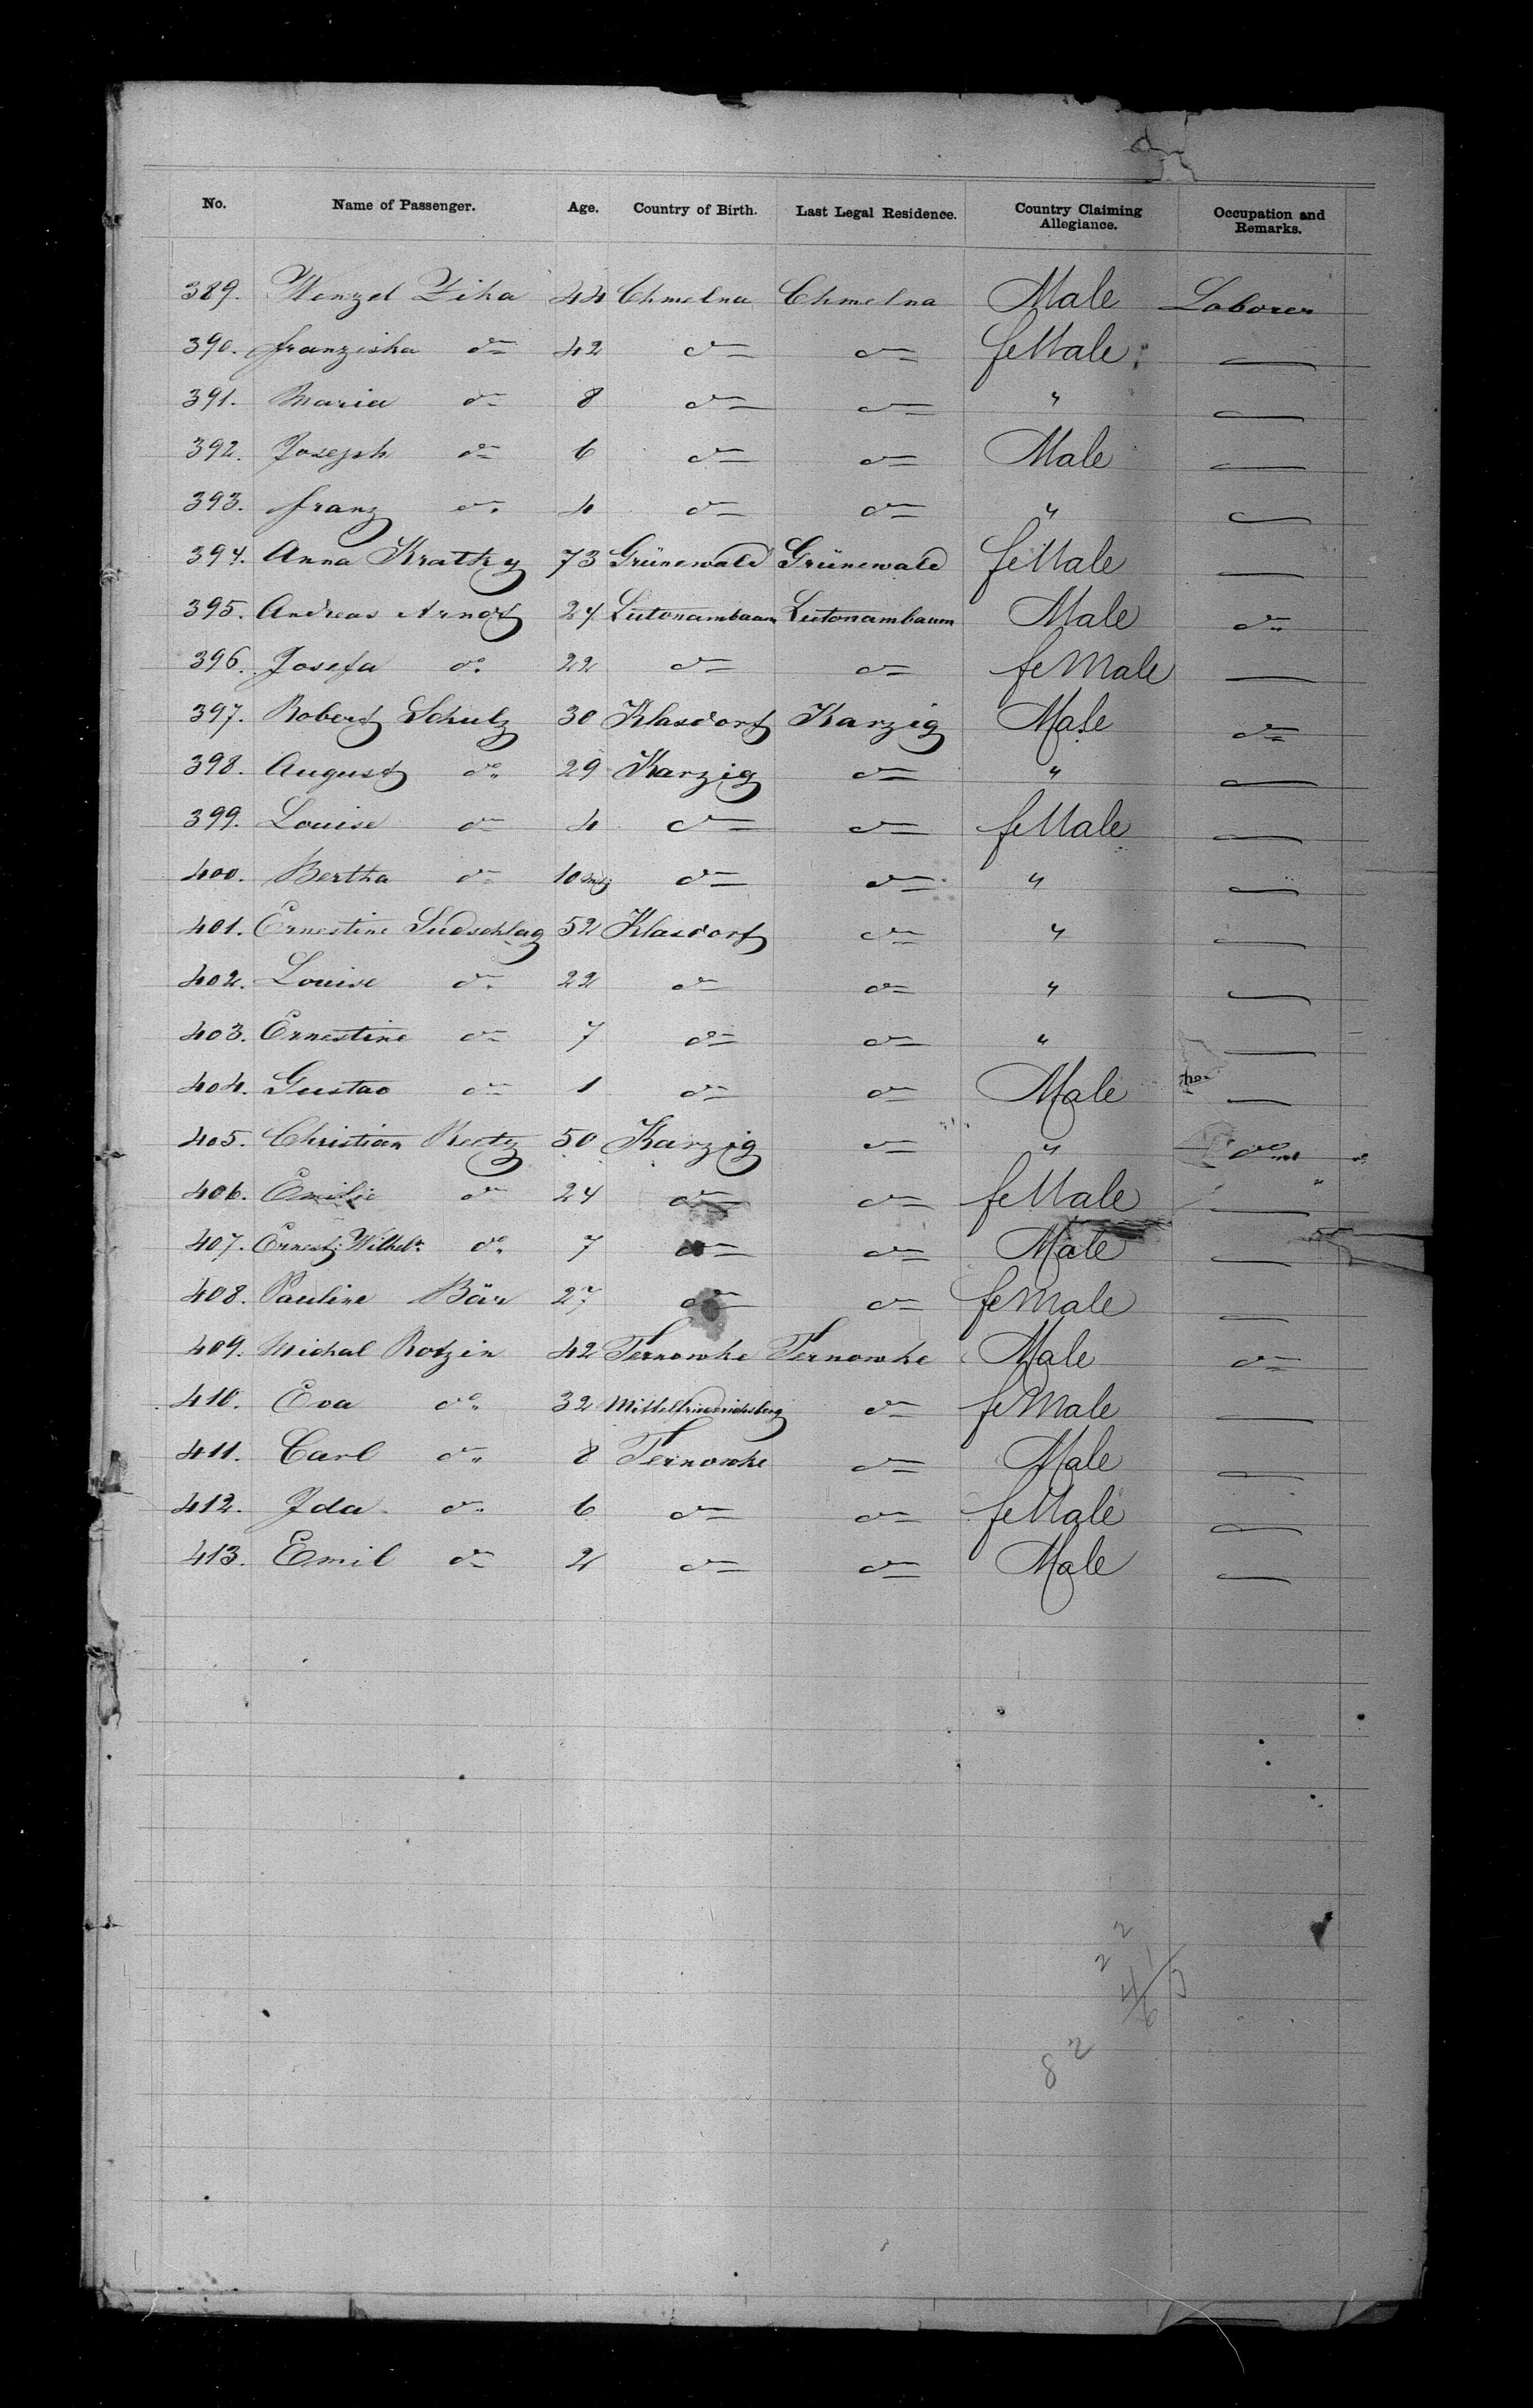 No. Name of Passenger. Age. Country of Birth. Last Legal Residence. Country Claiming Allegiance. Occupation and Remarks.
389. Wenzel Ziha 44 Chmelna Chmelna Male Laborer
390. franziska do 42 do do feMale —
391. Maria do 8 do do " —
392. Joseph do 6 do do Male —
393. franz do 4 do do " —
394. Anna Kratky 73 Grünewald Grünewald feMale —
395. Andreas Arndt 24 Lutonambaum Lutonambaum Male do
396. Josefa do 22 do do feMale —
397. Robert Schulz 30 Klasdorf Karzig Male do
398. August do 29 Karzig do " —
399. Louise do 4 do do feMale —
400. Bertha do 10 do do " —
401. Ernestine Sudschlag 52 Klasdorf do " —
402. Louise do 22 do do " —
403. Ernestine do 7 do do " —
404. Gustav do 1 do do Male —
405. Christian Reetz 50 Karzig do " do
406. Emilie do 24 do do feMale —
407. Ernest Wilhelm do 7 do do Male —
408. Pauline Bär 27 do do feMale —
409. Michal Rotzin 42 Ternowke Ternowke Male do
410. Eva do 32 Mittelfriedrichsberg do feMale —
411. Carl do 8 Ternowke do Male —
412. Ida do 6 do do feMale —
413. Emil do 2 do do Male —
2
2
8 2